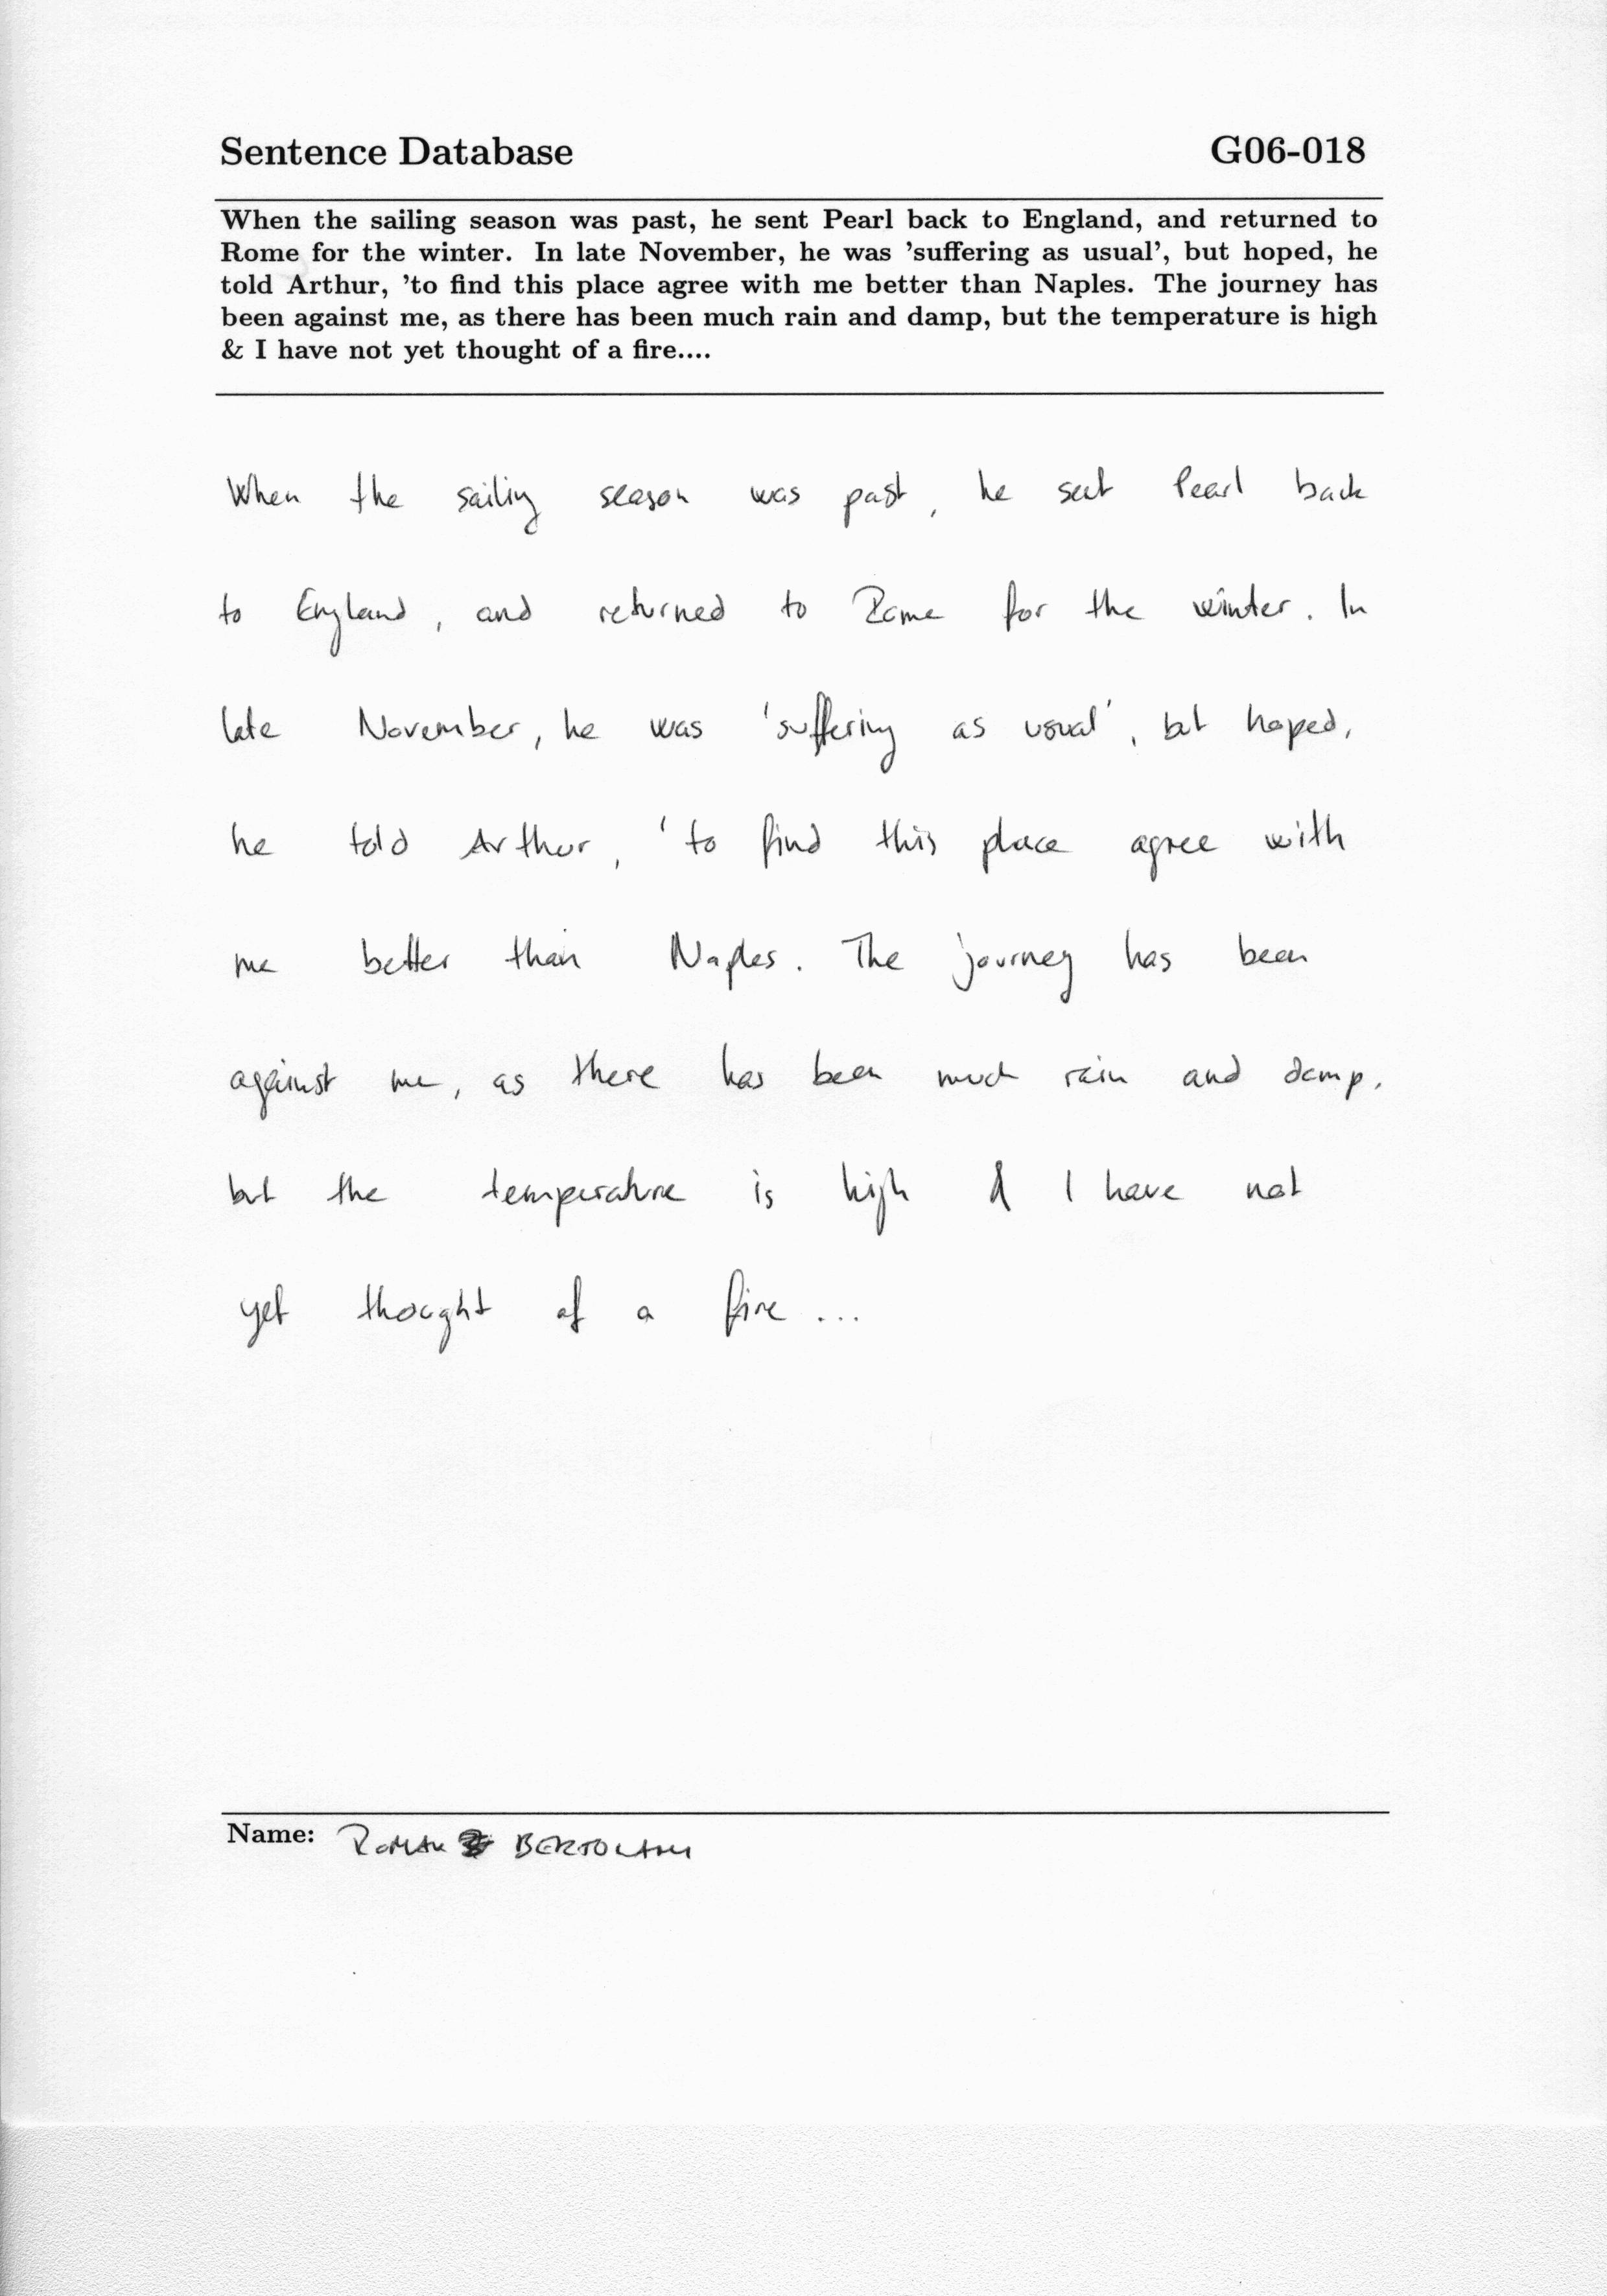 Sentence Database G06-018
When the sailing season was past, he sent Pearl back to England, and returned to
Rome for the winter. In late November, he was 'suffering as usual', but hoped, he
told Arthur, 'to find this place agree with me better than Naples. The journey has
been against me, as there has been much rain and damp, but the temperature is high
& I have not yet thought of a fire....
When the sailing season was past, he sent Pearl back
to England, and returned to Rome for the winter. In
late November, he was 'suffering as usual', but hoped,
he told Arthur, 'to find this place agree with
me better than Naples. The journey has been
against me, as there has been much rain and damp,
but the temperature is high & I have not
yet thought of a fire ...
Name: ROMAN BERTOLAMI